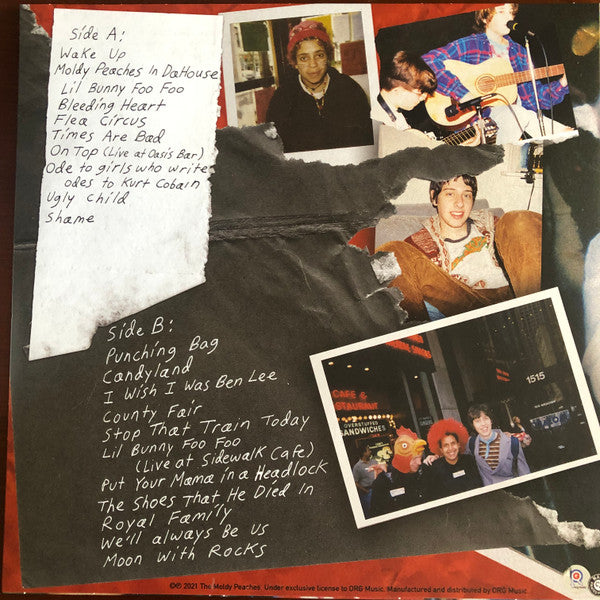 Side A:
Wake Up
Moldy Peaches In DaHouse
Lil Bunny Foo Foo
Bleeding Heart
Flea Circus
Times Are Bad
On Top (Live at Oasis Bar)
Ode to girls who write
odes to Kurt Cobain
Ugly Child
Shame
Side B:
Punching Bag
Candyland
I Wish I Was Ben Lee
County Fair
Stop That Train Today
Lil Bunny Foo Foo
(Live at Sidewalk Cafe)
Put Your Mama in a Headlock
The Shoes That He Died In
Royal Family
We'll always Be Us
Moon With Rocks
CAFE &
STAURANT
OVERSTUFFED
SANDWICHES
1515
©℗ 2021 The Moldy Peaches. Under exclusive license to ORG Music. Manufactured and distributed by ORG Music.